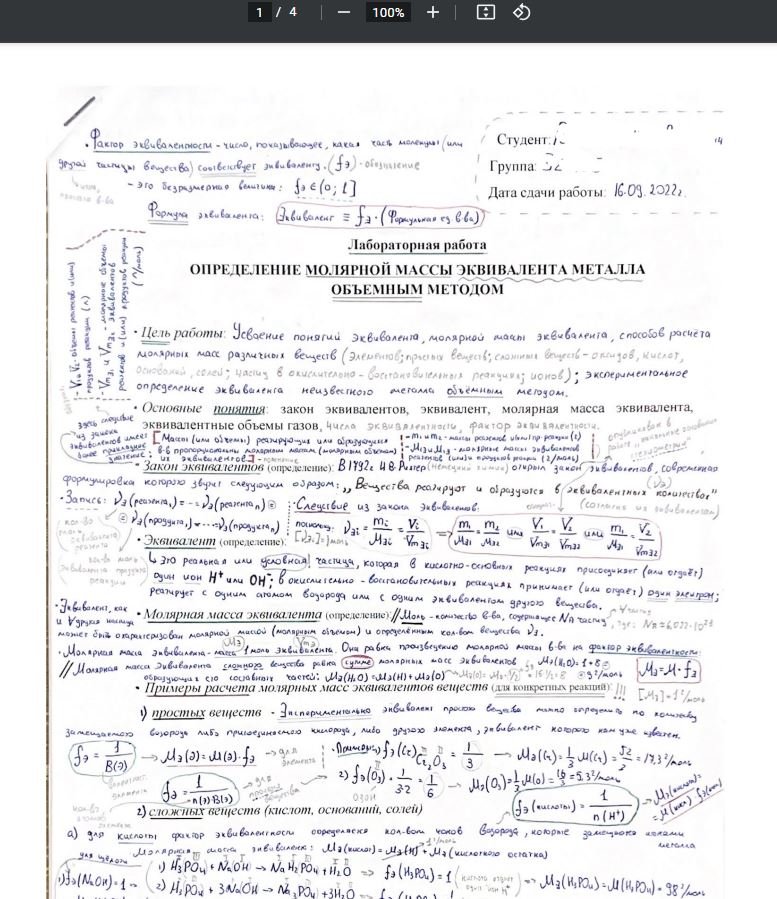 1 / 4
100%
• Фактор эквивалентности - число, показывающее, какая часть молекулы (или
другой частицы вещества) соответствует эквиваленту. (fэ) - обозначение
- это безразмерная величина: fэ ∈ (0; 1]
Формула эквивалента: Эквивалент ≡ fэ · (Формульная ед. в-ва)
Студент:
Группа:
Дата сдачи работы: 16.09.2022г.
Лабораторная работа
ОПРЕДЕЛЕНИЕ МОЛЯРНОЙ МАССЫ ЭКВИВАЛЕНТА МЕТАЛЛА
ОБЪЕМНЫМ МЕТОДОМ
• Цель работы: Усвоение понятий эквивалента, молярной массы эквивалента, способов расчёта
молярных масс различных веществ (элементов; простых веществ; сложных веществ - оксидов, кислот,
оснований, солей; частиц в окислительно-восстановительных реакциях; ионов); экспериментальное
определение эквивалента неизвестного металла объёмным методом.
• Основные понятия: закон эквивалентов, эквивалент, молярная масса эквивалента,
эквивалентные объемы газов, число эквивалентности, фактор эквивалентности.
здесь следствие
из закона
эквивалентов имеет
более прикладное
значение:
[Массы (или объёмы) реагирующих или образующихся
в-в пропорциональны молярным массам (молярным объёмам)
их эквивалентов]
- m₁ и m₂ - массы реагентов и/или пр. реакции (г)
- Mэ₁ и Mэ₂ - молярные массы эквивалентов
реагентов (и/или продуктов реакции) (г/моль)
• Закон эквивалентов (определение): В 1792г И.В. Рихтер (немецкий химик) открыл закон эквивалентов, современная
формулировка которого звучит следующим образом: „Вещества реагируют и образуются в эквивалентных количествах"
• Запись: νэ(реагента₁) = … = νэ(реагентаₙ) =
= νэ(продукта₁) = … = νэ(продуктаₙ)
Следствие из закона эквивалентов:
поскольку: νэi = mi/Mэi = Vi/Vmэi ⇒ m₁/Mэ₁ = m₂/Mэ₂ или V₁/Vmэ₁ = V₂/Vmэ₂ или m₁/Mэ₁ = V₂/Vmэ₂
[νэi] = моль
• Эквивалент (определение):
↳ это реальная или условная частица, которая в кислотно-основных реакциях присоединяет (или отдаёт)
один ион H⁺ или OH⁻; в окислительно-восстановительных реакциях принимает (или отдаёт) один электрон;
реагирует с одним атомом водорода или с одним эквивалентом другого вещества.
• Эквивалент, как
и другая частица
• Молярная масса эквивалента (определение): // Моль - количество в-ва, содержащее NA частиц
может быть охарактеризован молярной массой (молярным объёмом) и определённым кол-вом вещества νэ.
• Молярная масса эквивалента - масса 1 моль эквивалента. Она равна произведению молярной массы в-ва на фактор эквивалентности:
// Молярная масса эквивалента сложного вещества равна сумме молярных масс эквивалентов
образующих его составных частей: Mэ(H₂O) = Mэ(H) + Mэ(O)
Mэ = M · fэ
[Mэ] = 1 г/моль
• Примеры расчета молярных масс эквивалентов веществ (для конкретных реакций): !!!
1) простых веществ - Экспериментально эквивалент простого вещества можно определить по количеству
замещаемого водорода либо присоединяемого кислорода, либо другого элемента, эквивалент которого нам уже известен.
fэ = 1/В(э) → Mэ(э) = M(э) · fэ → для элемента
• Примеры: 1) fэ(Cr) Cr₂O₃ = 1/3 → Mэ(Cr) = 1/3 M(Cr) = 52/3 = 17,3 г/моль
fэ = 1/(n(э)·В(э)) → для простого вещества
2) fэ(O₃) = 1/(3·2) = 1/6 → Mэ(O₃) = 1/3 M(O) = 16/3 = 5,3 г/моль
озон
2) сложных веществ (кислот, оснований, солей)
fэ(кислоты) = 1/n(H⁺)
а) для кислоты фактор эквивалентности определяется кол-вом ионов водорода, которые замещаются ионами
металла
Молярная масса эквивалента: Mэ(кислот) = Mэ(H) + Mэ(кислотного остатка)
для щёлочи
1) fэ(NaOH) = 1
1) H₃PO₄ + NaOH → NaH₂PO₄ + H₂O ⇒ fэ(H₃PO₄) = 1 → Mэ(H₃PO₄) = M(H₃PO₄) = 98 г/моль
2) H₃PO₄ + 3NaOH → Na₃PO₄ + 3H₂O